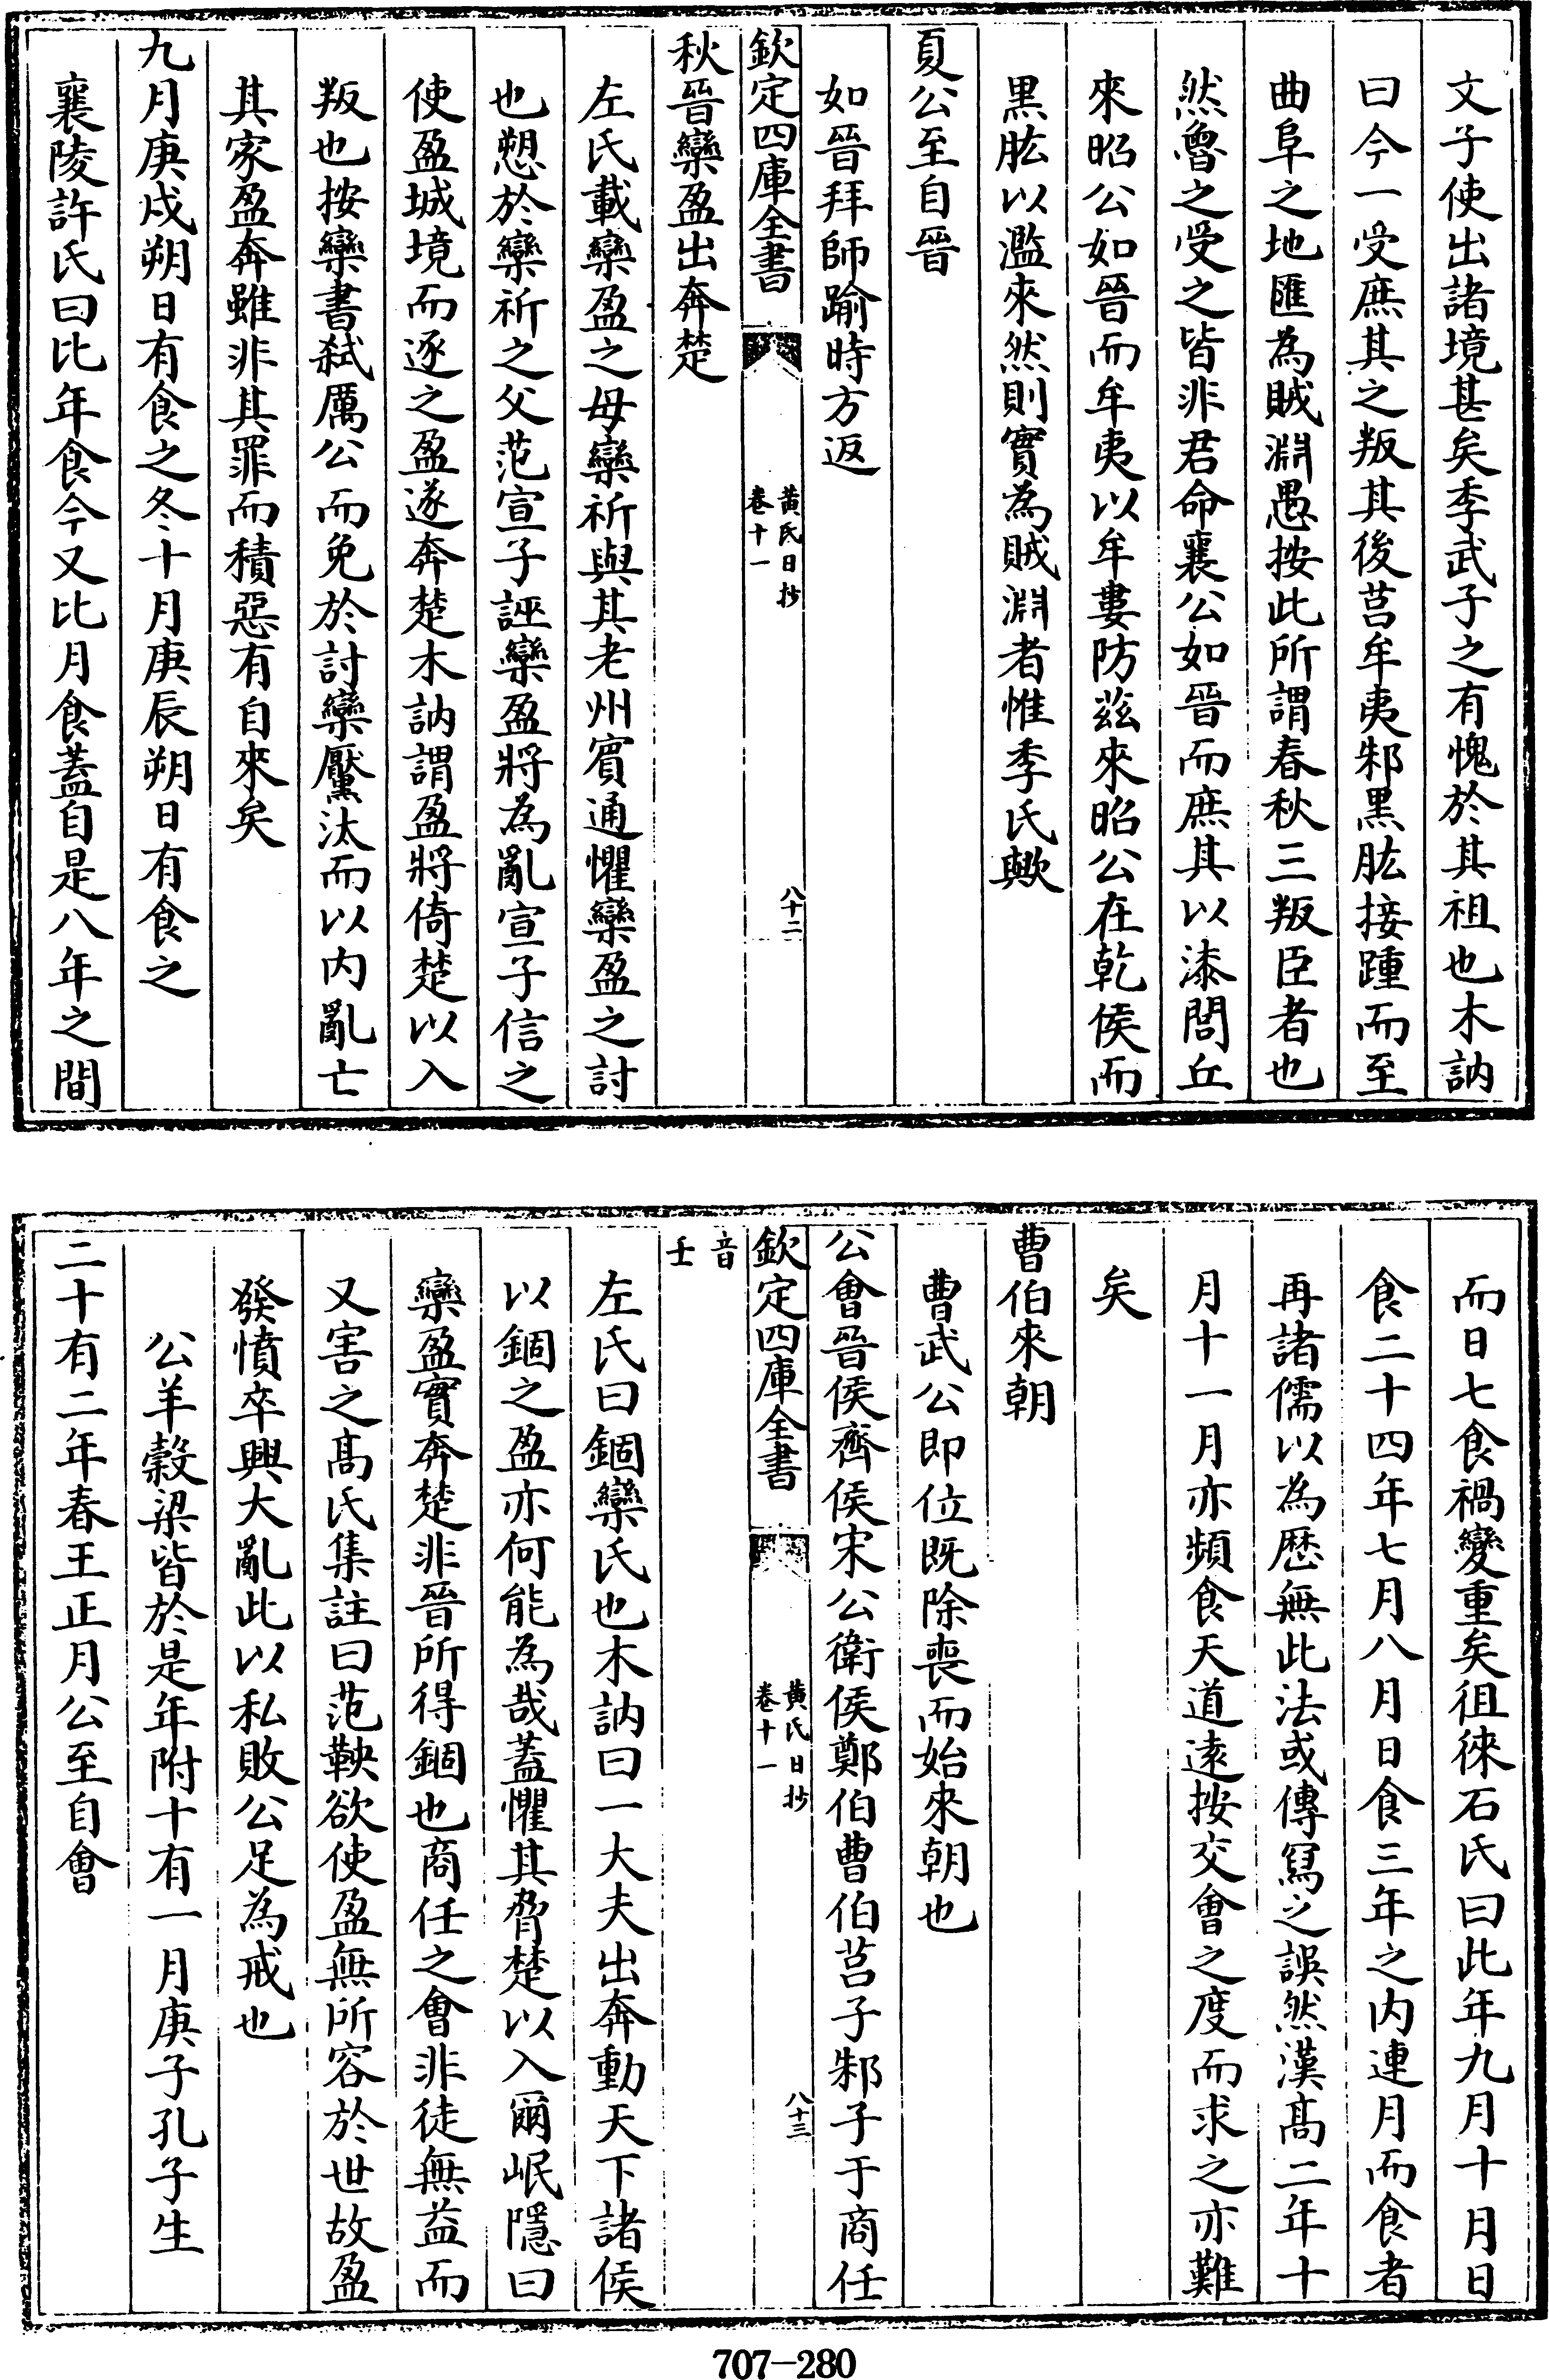 文子使出諸境甚矣季武子之有愧於其祖也木訥
曰今一受庶其之叛其後莒牟夷邾黒肱接踵而至
曲阜之地匯為賊淵愚按此所謂春秋三叛臣者也
然魯之受之皆非君命襄公如晉而庶其以漆閭丘
來昭公如晉而牟夷以牟婁防茲來昭公在乾侯而
黒肱以濫來然則實為賊淵者惟季氏歟
夏公至自晉
如晉拜師踰時方返
欽定四庫全書
黃氏日抄
卷十一
八十二
秋晉欒盈出奔楚
左氏載欒盈之母欒祈與其老州賓通懼欒盈之討
也愬於欒祈之父范宣子誣欒盈將為亂宣子信之
使盈城境而逐之盈遂奔楚木訥謂盈將倚楚以入
叛也按欒書弑厲公而免於討欒黶汰而以内亂亡
其家盈奔雖非其罪而積惡有自來矣
九月庚戌朔日有食之冬十月庚辰朔日有食之
襄陵許氏曰比年食今又比月食蓋自是八年之間
而日七食禍變重矣徂徠石氏曰此年九月十月日
食二十四年七月八月日食三年之内連月而食者
再諸儒以為厯無此法或傳寫之誤然漢髙二年十
月十一月亦頻食天道逺按交會之度而求之亦難
矣
曹伯來朝
曹武公即位既除喪而始來朝也
公會晉侯齊侯宋公衛侯鄭伯曹伯莒子邾子于商任
欽定四庫全書
黃氏日抄
卷十一
八十三
音
壬
左氏曰錮欒氏也木訥曰一大夫出奔動天下諸侯
以錮之盈亦何能為哉蓋懼其脅楚以入爾岷隱曰
欒盈實奔楚非晉所得錮也商任之會非徒無益而
又害之髙氏集註曰范鞅欲使盈無所容於世故盈
發憤卒興大亂此以私敗公足為戒也
公羊榖梁皆於是年附十有一月庚子孔子生
二十有二年春王正月公至自會
707-280